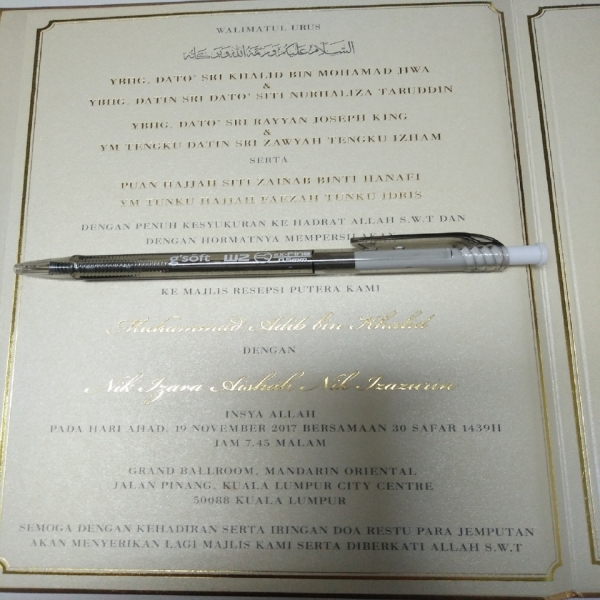 WALIMATUL URUS
السلام عليكم ورحمة الله وبركاته
YBHG. DATO' SRI KHALID BIN MOHAMAD JIWA
&
YBHG. DATIN SRI DATO' SITI NURHALIZA TARUDDIN
YBHG. DATO' SRI RAYYAN JOSEPH KING
&
YM TENGKU DATIN SRI ZAWYAH TENGKU IZHAM
SERTA
PUAN HAJJAH SITI ZAINAB BINTI HANAFI
YM TUNKU HAJJAH FAUZAH TUNKU IDRIS
DENGAN PENUH KESYUKURAN KE HADRAT ALLAH S.W.T DAN
DENGAN HORMATNYA MEMPERSILAKAN
g'soft W2 0.5mm
KE MAJLIS RESEPSI PUTERA KAMI
Muhammad Adib bin Khalid
DENGAN
Nik Izara Aishah Nik Izazurin
INSYA ALLAH
PADA HARI AHAD, 19 NOVEMBER 2017 BERSAMAAN 30 SAFAR 1439H
JAM 7.45 MALAM
GRAND BALLROOM, MANDARIN ORIENTAL
JALAN PINANG, KUALA LUMPUR CITY CENTRE
50088 KUALA LUMPUR
SEMOGA DENGAN KEHADIRAN SERTA IRINGAN DOA RESTU PARA JEMPUTAN
AKAN MENYERIKAN LAGI MAJLIS KAMI SERTA DIBERKATI ALLAH S.W.T